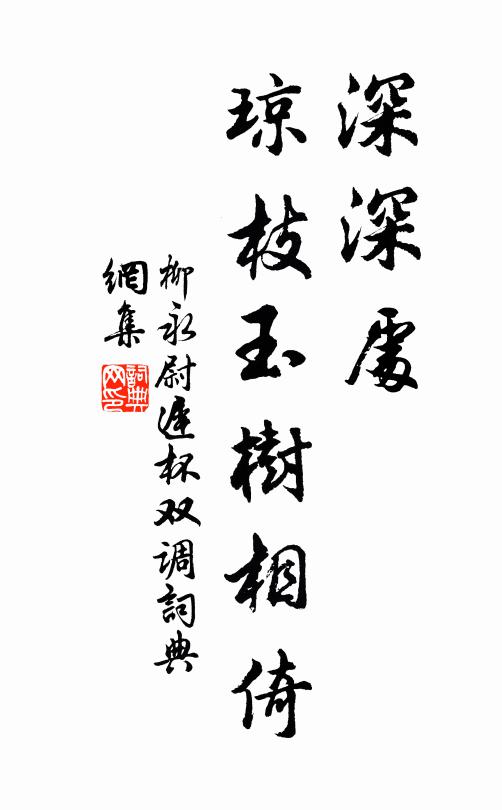 深深處
琼枝玉樹相倚
柳永尉遲杯双调詞典
網集
詞典网印